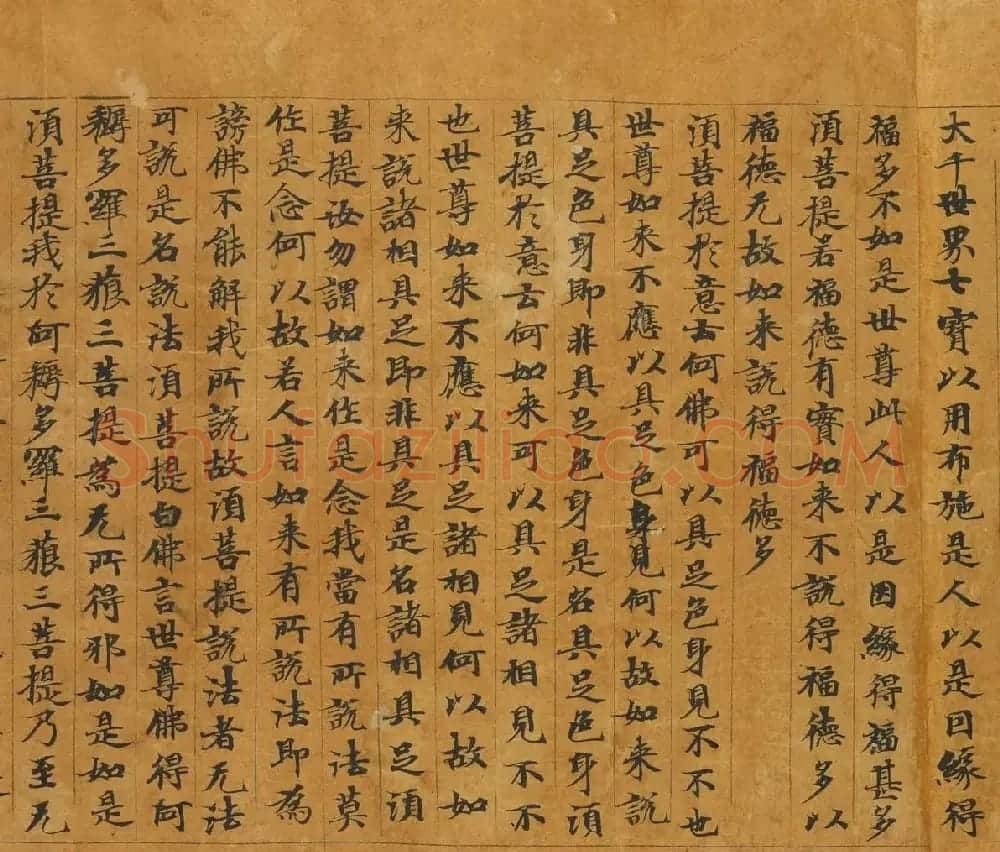 大千世界七寶以用布施是人以是因緣得
福多不如是世尊此人以是因緣得福甚多
須菩提若福德有實如来不說得福德多以
福德无故如来說得福德多
須菩提於意云何佛可以具足色身見不不也
世尊如来不應以具足色身見何以故如来說
具足色身即非具足色身是名具足色身須
菩提於意云何如来可以具足諸相見不不
也世尊如来不應以具足諸相見何以故如
来說諸相具足即非具足是名諸相具足須
菩提汝勿謂如来作是念我當有所說法莫
作是念何以故若人言如来有所說法即為
謗佛不能解我所說故須菩提說法者无法
可說是名說法須菩提白佛言世尊佛得阿
耨多羅三藐三菩提為无所得邪如是如是
須菩提我於阿耨多羅三藐三菩提乃至无
Shufaziliao.COM